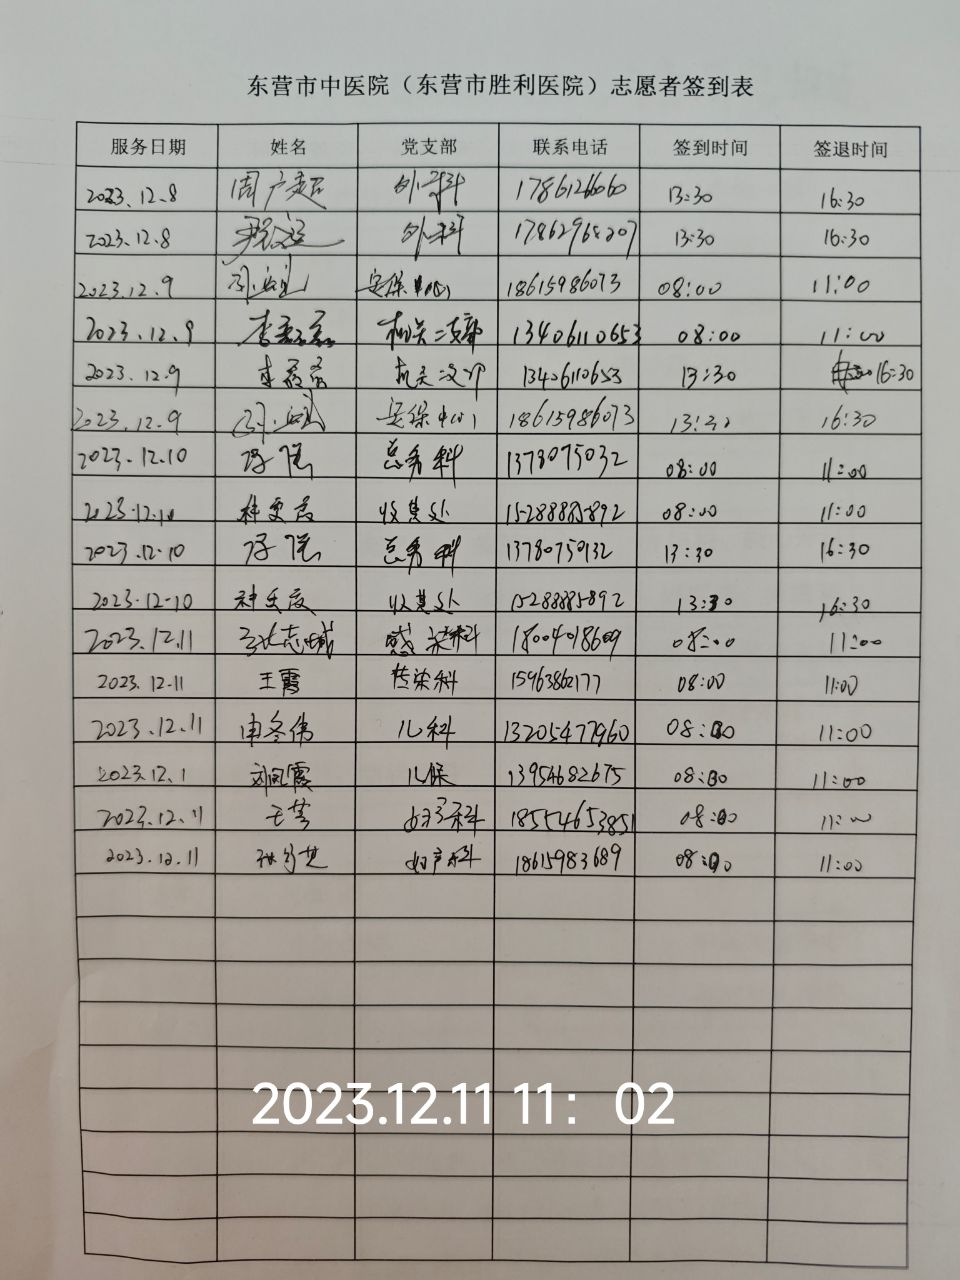 东营市中医院（东营市胜利医院）志愿者签到表
服务日期 姓名 党支部 联系电话 签到时间 签退时间
2023.12.8 外科 1786126060 13:30 16:30
2023.12.8 外科 13:30 16:30
2023.12.9 安保中心 18615986073 08:00 11:00
2023.12.9 机关二支部 13406110653 08:00 11:00
2023.12.9 13406110653 13:30 16:30
2023.12.9 安保中心 18615986073 13:30 16:30
2023.12.10 总务科 1378075032 08:00 11:00
2023.12.10 收费处 15288885892 08:00 11:00
2023.12.10 总务科 13780750132 13:30 16:30
2023.12.10 收费处 15288885892 13:30 16:30
2023.12.11 感染科 18004018609 08:00 11:00
2023.12.11 王霞 传染科 15963862177 08:00 11:00
2023.12.11 申冬伟 儿科 13205477960 08:00 11:00
2023.12.1 刘凤霞 儿保 13954682675 08:00 11:00
2023.12.11 妇产科 18554653851 08:00 11:00
2023.12.11 妇产科 18615983689 08:00 11:00
2023.12.11 11：02